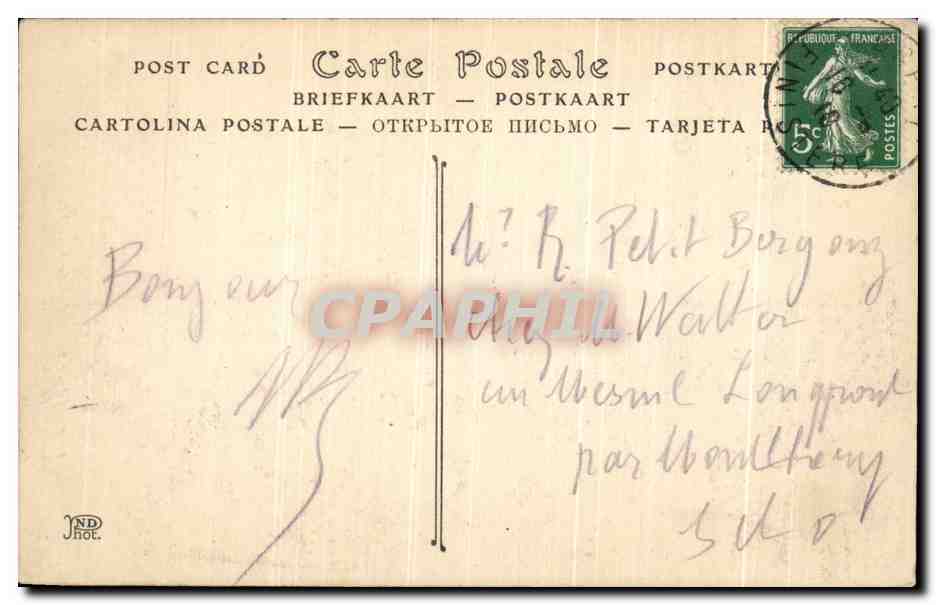 POST CARD Carte Postale POSTKART
BRIEFKAART — POSTKAART
CARTOLINA POSTALE — ОТКРЫТОЕ ПИСЬМО — TARJETA P
REPUBLIQUE FRANÇAISE
5c POSTES
FINISTERE
Bonjour
Mr R. Petit Bergonz
chez Mr Walter
au Mesnil Longpont
par Montlhery
S & O
CPAPHIL
ND Phot.